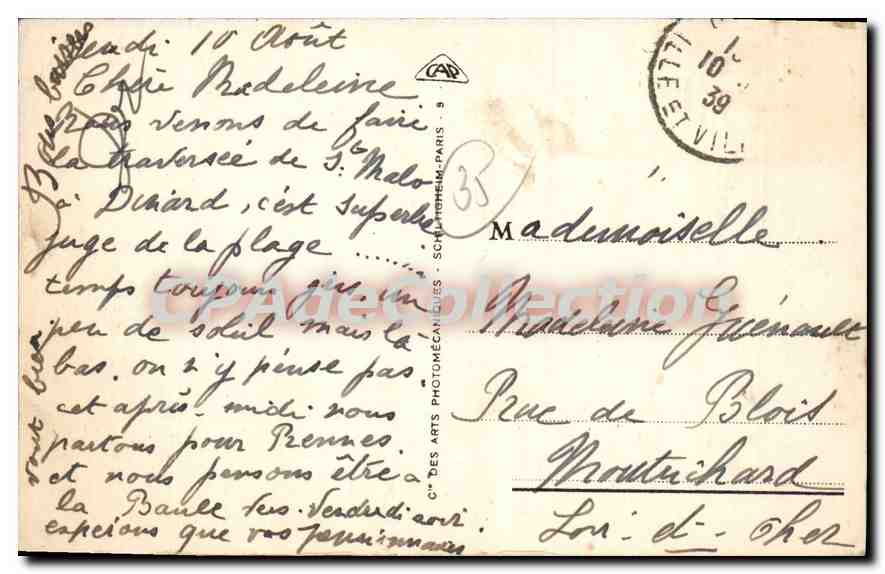 Jeudi 10 Août
Chère Madeleine
Nous venons de faire
la traversée de St Malo
à Dinard, c'est superbe
juge de la plage .......
temps toujours gris, un
peu de soleil mais là
bas, on n'y pense pas
cet après-midi nous
partons pour Rennes
et nous pensons être à
la Baule Vers Vendredi soir
espérons que vos pensionnaires
vont bien
Bons baisers
CAP
Cie DES ARTS PHOTOMÉCANIQUES - SCHILTIGHEIM-PARIS - 9
35
10
39
ILLE ET VIL
Mademoiselle
Madeleine Guénault
Rue de Blois
Montrichard
Loir-et-Cher
CPAdeCollection